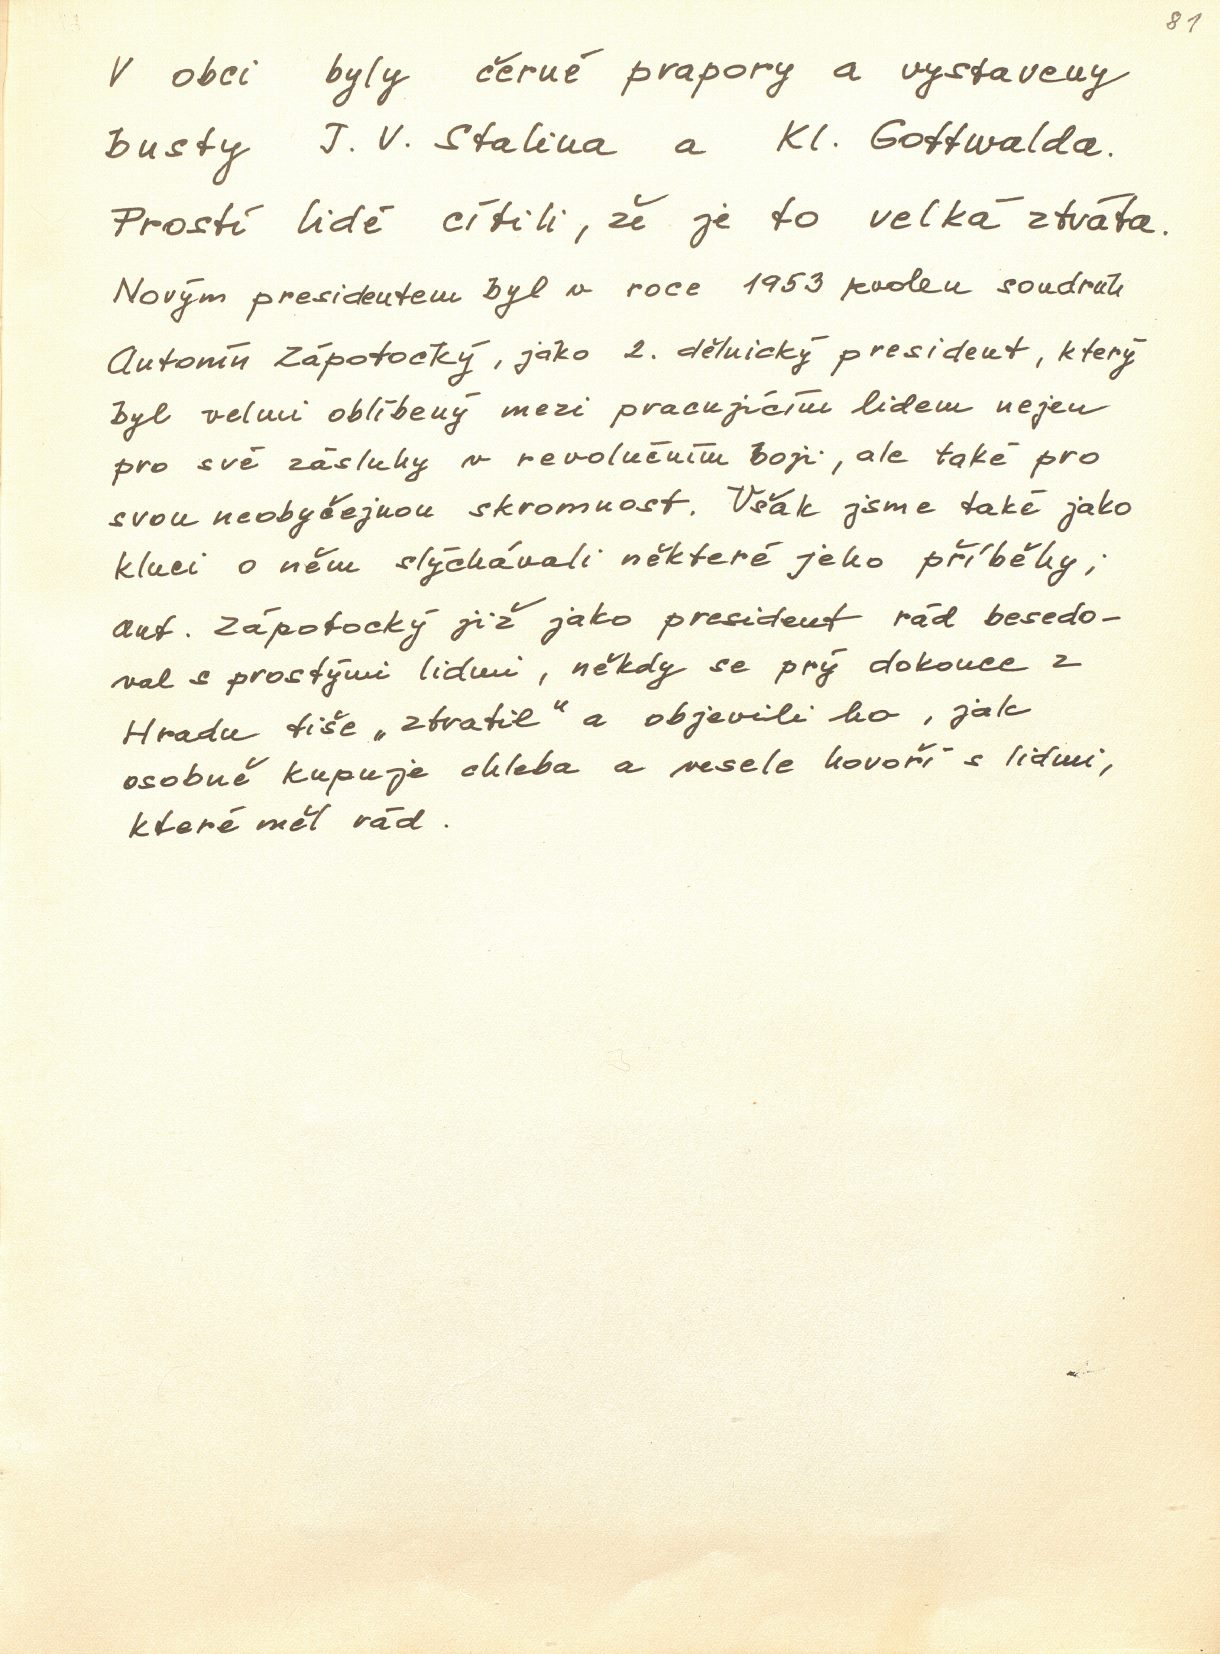 81
V obci byly černé prapory a vystaveny
busty J. V. Stalina a Kl. Gottwalda.
Prostí lidé cítili, že je to velká ztráta.
Novým presidentem byl v roce 1953 zvolen soudruh
Antonín Zápotocký, jako 2. dělnický president, který
byl velmi oblíbený mezi pracujícím lidem nejen
pro své zásluhy v revolučním boji, ale také pro
svou neobyčejnou skromnost. Však jsme také jako
kluci o něm slýchávali některé jeho příběhy;
Ant. Zápotocký již jako president rád besedo-
val s prostými lidmi, někdy se prý dokonce z
Hradu tiše „ztratil“ a objevili ho, jak
osobně kupuje chleba a vesele hovoří s lidmi,
které měl rád.